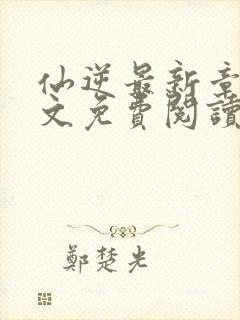 仙逆最新章
文免費閱讀
鄭楚光